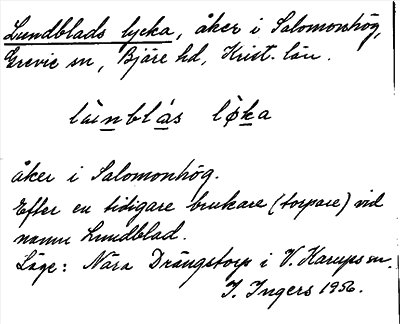 Lundblads lycka, åker i Salomonhög,
Grevie sn, Bjäre hd, Krist. län.
åker i Salomonhög.
Efter en tidigare brukare (torpare) vid
namn Lundblad.
Läge: Nära Drängstorp i V. Karups sn.
I. Ingers 1956.